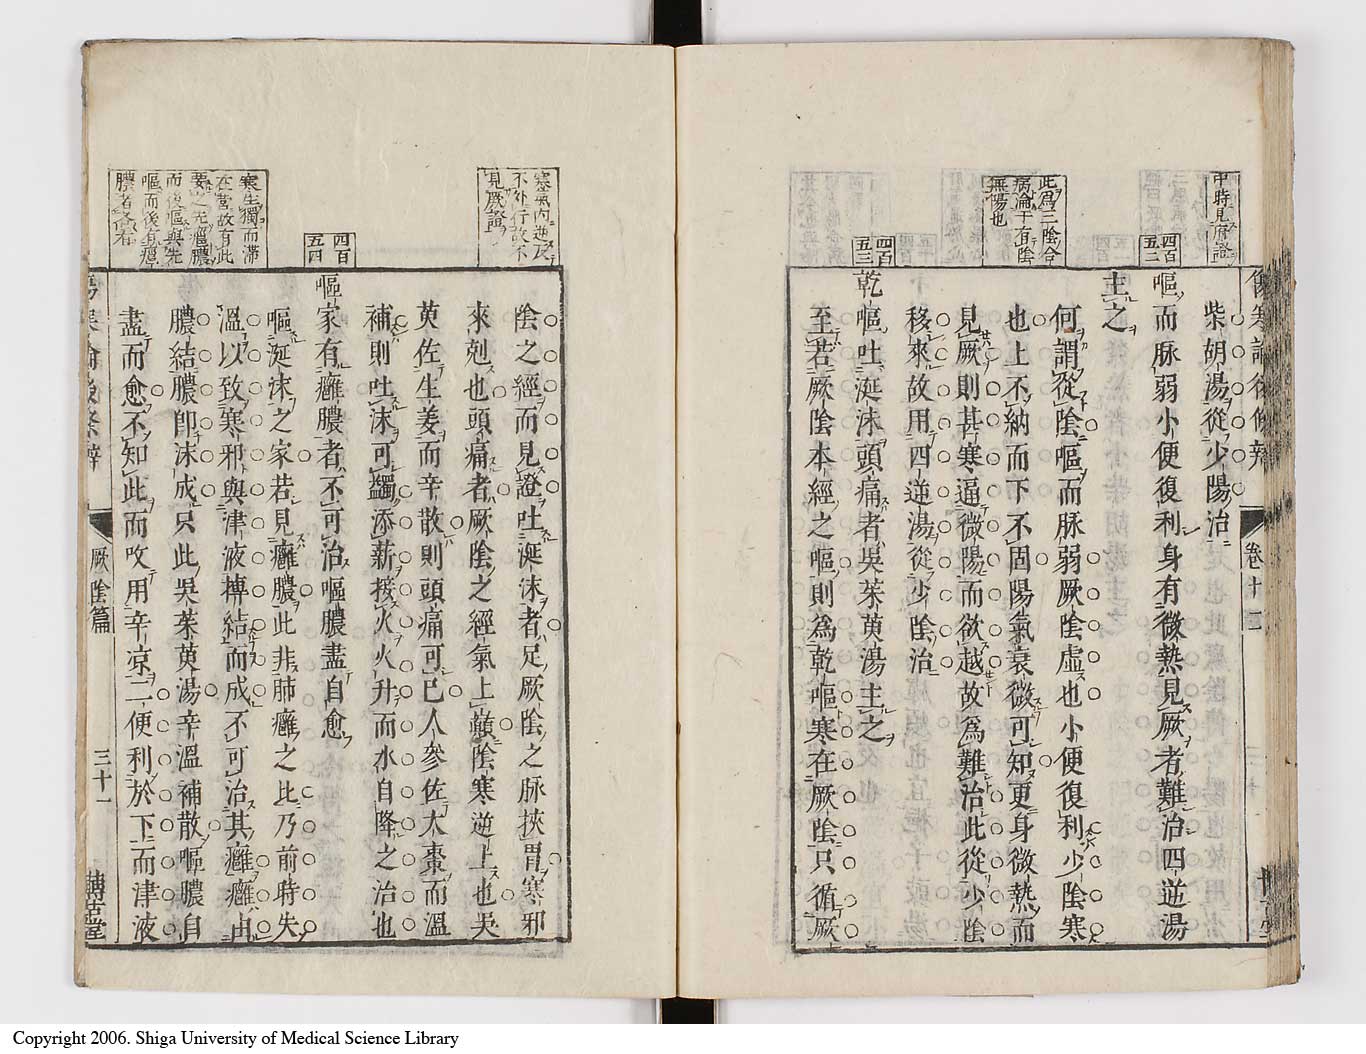 中時見府證
柴胡湯從少陽治
四百五二
嘔而脉弱小便復利身有微熱見厥者難治四逆湯
主之
此爲三陰合
病淪于有陰
無陽也
何謂從陰嘔而脉弱厥陰虛也小便復利少陰寒
也上不納而下不固陽氣衰微可知更身微熱而
見厥則甚寒逼微陽而欲越故爲難治此從少陰
移來故用四逆湯從少陰治
四百五三
乾嘔吐涎沫頭痛者吳茱萸湯主之
至若厥陰本經之嘔則爲乾嘔寒在厥陰只循厥
卷十二
寒氣内逆反
不外行故不
見厥證
陰之經而見證吐涎沫者足厥陰之脉挾胃寒邪
來剋也頭痛者厥陰之經氣上巔陰寒逆上也吳
茰佐生姜而辛散則頭痛可已人參佐大棗而溫
補則吐沫可蠲添薪接火火升而水自降之治也
四百五四
嘔家有癰膿者不可治嘔膿盡自愈
寒生獨而滯
在營故有此
要之先癰膿
而後嘔與先
嘔而後有癰
膿者各有
嘔涎沫之家若見癰膿此非肺癰之比乃前時失
溫以致寒邪與津液摶結而成不可治其癰癰由
膿結膿卽沫成只此吳茱萸湯辛溫補散嘔膿自
盡而愈不知此而攻用辛凉二便利於下而津液
厥陰篇
三十一
博古堂
Copyright 2006. Shiga University of Medical Science Library